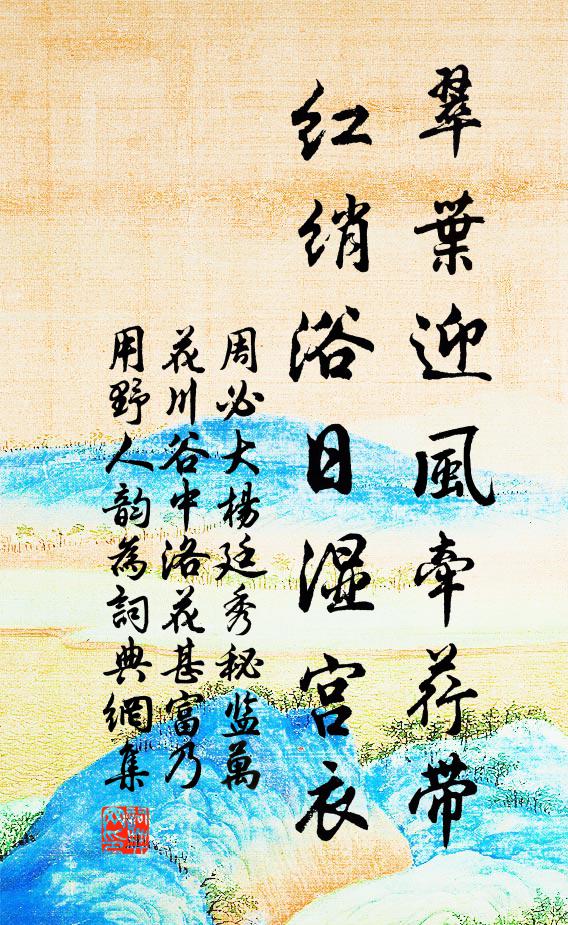 翠葉迎風牽荇帶
紅綃浴日濕宮衣
周必大楊廷秀秘监萬
花川谷中洛花甚富乃
用野人韵為詞典網集